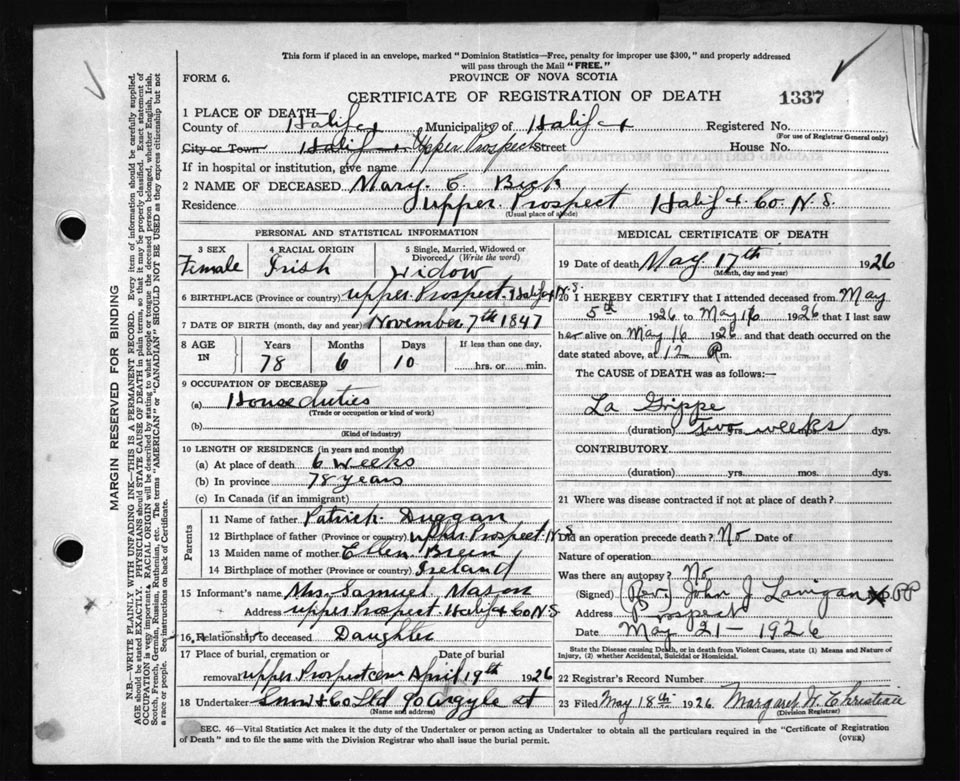 This form if placed in an envelope, marked "Dominion Statistics—Free, penalty for improper use $300," and properly addressed
will pass through the Mail "FREE."
FORM 6.
PROVINCE OF NOVA SCOTIA
CERTIFICATE OF REGISTRATION OF DEATH
1337
1 PLACE OF DEATH—
County of Halifax Municipality of Halifax Registered No.
(For use of Registrar General only)
City or Town Halifax Upper Prospect Street House No.
If in hospital or institution, give name
2 NAME OF DECEASED Mary E.
Residence Upper Prospect Halifax Co. N.S.
(Usual place of abode)
PERSONAL AND STATISTICAL INFORMATION
3 SEX 4 RACIAL ORIGIN 5 Single, Married, Widowed or
Divorced (Write the word)
Female Irish Widow
6 BIRTHPLACE (Province or country) upper Prospect Halifax N.S.
7 DATE OF BIRTH (month, day and year) November 7th 1847
8 AGE IN Years Months Days If less than one day,
78 6 10 hrs. or min.
9 OCCUPATION OF DECEASED
(a) House duties
(Trade or occupation or kind of work)
(b)
(Kind of industry)
10 LENGTH OF RESIDENCE (in years and months)
(a) At place of death 6 weeks
(b) In province 78 years
(c) In Canada (if an immigrant)
Parents
11 Name of father Patrick Duggan
12 Birthplace of father (Province or country) upper Prospect N.S
13 Maiden name of mother Ellen Breen
14 Birthplace of mother (Province or country) Ireland
15 Informant's name Mrs. Samuel Mason
Address upper Prospect Halifax Co N.S
16 Relationship to deceased Daughter
17 Place of burial, cremation or Date of burial
removal upper Prospect cem April 19th 1926
18 Undertaker Snow & Co Ltd 90 Argyle st
(Name and address)
MEDICAL CERTIFICATE OF DEATH
19 Date of death May 17th 1926
(Month, day and year)
20 I HEREBY CERTIFY that I attended deceased from May
5th 1926 to May 16 1926 that I last saw
her alive on May 16 1926 and that death occurred on the
date stated above, at 12 P.m.
The CAUSE of DEATH was as follows:—
La Grippe
(duration) Two yrs. weeks dys.
CONTRIBUTORY.
(duration) yrs. mos. dys.
21 Where was disease contracted if not at place of death?
Did an operation precede death? No Date of
Nature of operation
Was there an autopsy? No
(Signed) (Rev) John J. Lanigan PP
Address Prospect
Date May 21 — 1926
State the Disease causing Death, or in death from Violent Causes, state (1) Means and Nature of
Injury, (2) whether Accidental, Suicidal or Homicidal.
22 Registrar's Record Number
23 Filed May 18th 1926 Margaret W. Christian
(Division Registrar)
SEC. 46—Vital Statistics Act makes it the duty of the Undertaker or person acting as Undertaker to obtain all the particulars required in the "Certificate of Registration
of Death" and to file the same with the Division Registrar who shall issue the burial permit.
(OVER)
MARGIN RESERVED FOR BINDING
N.B.—WRITE PLAINLY WITH UNFADING INK—THIS IS A PERMANENT RECORD. Every item of information should be carefully supplied.
AGE should be stated EXACTLY. PHYSICIANS should STATE CAUSE OF DEATH in plain terms, so that it may be properly classified. Exact statement of
OCCUPATION is very important. RACIAL ORIGIN will be described by stating to what people or tongue the deceased person belonged, whether English, Irish,
Scotch, French, German, Russian, Ruthenian, etc. The terms "AMERICAN" or "CANADIAN" SHOULD NOT BE USED as they express citizenship but not
a race or people. See instructions on back of Certificate.